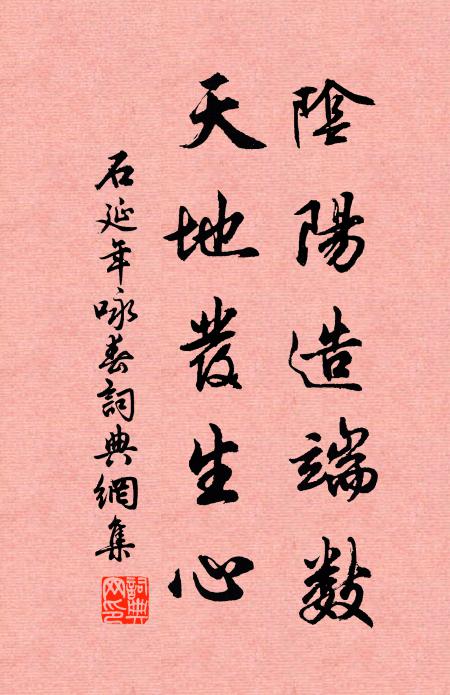 陰陽造端數
天地發生心
石延年咏春詞典網集
詞典网印